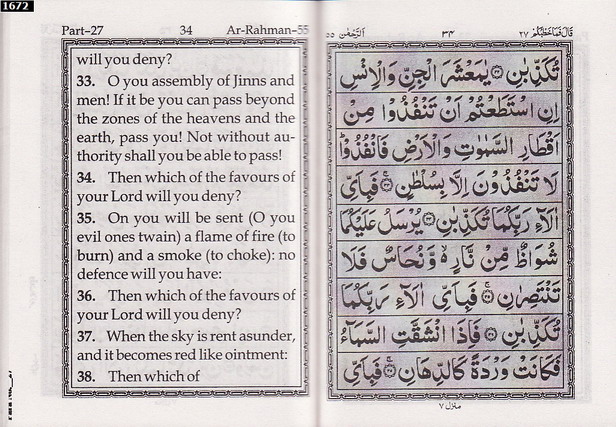 1672
Part-27 34 Ar-Rahman-55
will you deny?
33. O you assembly of Jinns and
men! If it be you can pass beyond
the zones of the heavens and the
earth, pass you! Not without au-
thority shall you be able to pass!
34. Then which of the favours of
your Lord will you deny?
35. On you will be sent (O you
evil ones twain) a flame of fire (to
burn) and a smoke (to choke): no
defence will you have:
36. Then which of the favours of
your Lord will you deny?
37. When the sky is rent asunder,
and it becomes red like ointment:
38. Then which of
قَالَ فَمَا خَطْبُكُمْ ٢٧ ٣٤ اَلرَّحْمٰن ٥٥
تُكَذِّبٰنِ ۝٣٢ يٰمَعْشَرَ الْجِنِّ وَالْاِنْسِ
اِنِ اسْتَطَعْتُمْ اَنْ تَنْفُذُوْا مِنْ
اَقْطَارِ السَّمٰوٰتِ وَالْاَرْضِ فَانْفُذُوْا ؕ
لَا تَنْفُذُوْنَ اِلَّا بِسُلْطٰنٍ ۝٣٣ فَبِاَيِّ
اٰلَآءِ رَبِّكُمَا تُكَذِّبٰنِ ۝٣٤ يُرْسَلُ عَلَيْكُمَا
شُوَاظٌ مِّنْ نَّارٍ ۙ وَّنُحَاسٌ فَلَا
تَنْتَصِرٰنِ ۝٣٥ فَبِاَيِّ اٰلَآءِ رَبِّكُمَا
تُكَذِّبٰنِ ۝٣٦ فَاِذَا انْشَقَّتِ السَّمَآءُ
فَكَانَتْ وَرْدَةً كَالدِّهَانِ ۝٣٧ فَبِاَيِّ
منزل ٧